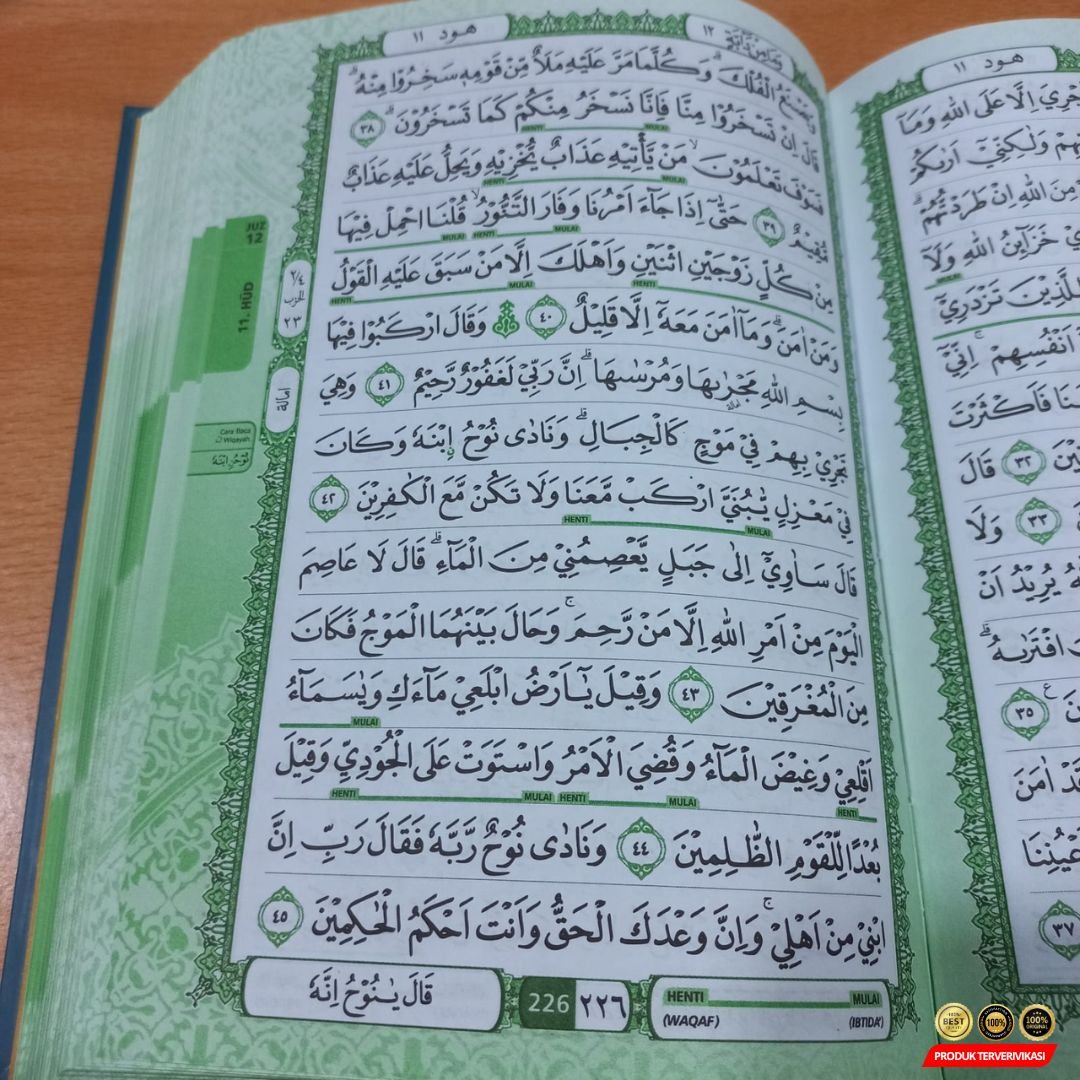 هود ١١
وما من دآبة ١٢
وَيَصْنَعُ الْفُلْكَۗ وَكُلَّمَا مَرَّ عَلَيْهِ مَلَاٌ مِّنْ قَوْمِهٖ سَخِرُوْا مِنْهُۗ
قَالَ اِنْ تَسْخَرُوْا مِنَّا فَاِنَّا نَسْخَرُ مِنْكُمْ كَمَا تَسْخَرُوْنَۗ ٣٨
HENTI MULAI
فَسَوْفَ تَعْلَمُوْنَۙ مَنْ يَّأْتِيْهِ عَذَابٌ يُّخْزِيْهِ وَيَحِلُّ عَلَيْهِ عَذَابٌ
HENTI MULAI
مُّقِيْمٌ ٣٩ حَتّٰىٓ اِذَا جَاۤءَ اَمْرُنَا وَفَارَ التَّنُّوْرُۙ قُلْنَا احْمِلْ فِيْهَا
MULAI HENTI MULAI
مِنْ كُلٍّ زَوْجَيْنِ اثْنَيْنِ وَاَهْلَكَ اِلَّا مَنْ سَبَقَ عَلَيْهِ الْقَوْلُ
HENTI MULAI HENTI
وَمَنْ اٰمَنَۗ وَمَآ اٰمَنَ مَعَهٗٓ اِلَّا قَلِيْلٌ ٤٠ وَقَالَ ارْكَبُوْا فِيْهَا
بِسْمِ اللّٰهِ مَجْرٰىهَا وَمُرْسٰىهَاۗ اِنَّ رَبِّيْ لَغَفُوْرٌ رَّحِيْمٌ ٤١ وَهِيَ
امالة
تَجْرِيْ بِهِمْ فِيْ مَوْجٍ كَالْجِبَالِۗ وَنَادٰى نُوْحُ ِۨابْنَهٗ وَكَانَ
فِيْ مَعْزِلٍ يّٰبُنَيَّ ارْكَبْ مَّعَنَا وَلَا تَكُنْ مَّعَ الْكٰفِرِيْنَ ٤٢
HENTI MULAI
قَالَ سَاٰوِيْٓ اِلٰى جَبَلٍ يَّعْصِمُنِيْ مِنَ الْمَاۤءِۗ قَالَ لَا عَاصِمَ
الْيَوْمَ مِنْ اَمْرِ اللّٰهِ اِلَّا مَنْ رَّحِمَۚ وَحَالَ بَيْنَهُمَا الْمَوْجُ فَكَانَ
مِنَ الْمُغْرَقِيْنَ ٤٣ وَقِيْلَ يٰٓاَرْضُ ابْلَعِيْ مَاۤءَكِ وَيٰسَمَاۤءُ
MULAI
اَقْلِعِيْ وَغِيْضَ الْمَاۤءُ وَقُضِيَ الْاَمْرُ وَاسْتَوَتْ عَلَى الْجُوْدِيِّ وَقِيْلَ
HENTI MULAI HENTI MULAI HENTI
بُعْدًا لِّلْقَوْمِ الظّٰلِمِيْنَ ٤٤ وَنَادٰى نُوْحٌ رَّبَّهٗ فَقَالَ رَبِّ اِنَّ
ابْنِيْ مِنْ اَهْلِيْۚ وَاِنَّ وَعْدَكَ الْحَقُّ وَاَنْتَ اَحْكَمُ الْحٰكِمِيْنَ ٤٥
قَالَ يٰنُوْحُ اِنَّهٗ
226 ٢٢٦
HENTI MULAI
(WAQAF) (IBTIDA')
JUZ
12
11. HŪD
٢/٤
الحزب
٢٣
امالة
Cara Baca
Wiqayah
نُوْحُ ِۨابْنَهٗ
هود ١١
اِلَّا عَلَى اللّٰهِ وَمَآ
وَلٰكِنِّيْٓ اَرٰىكُمْ
مِنَ اللّٰهِ اِنْ طَرَدْتُّهُمْۗ
خَزَاۤىِٕنُ اللّٰهِ وَلَآ
MULAI
لِلَّذِيْنَ تَزْدَرِيْٓ
اَنْفُسِهِمْۚ اِنِّيْٓ
فَاَكْثَرْتَ
٣٢ قَالَ
٣٣ وَلَا
يُرِيْدُ اَنْ
افْتَرٰىهُۗ
٣٥
اٰمَنَ
٣٧
100%
BEST
100%
100%
ORIGINAL
PRODUK TERVERIVIKASI